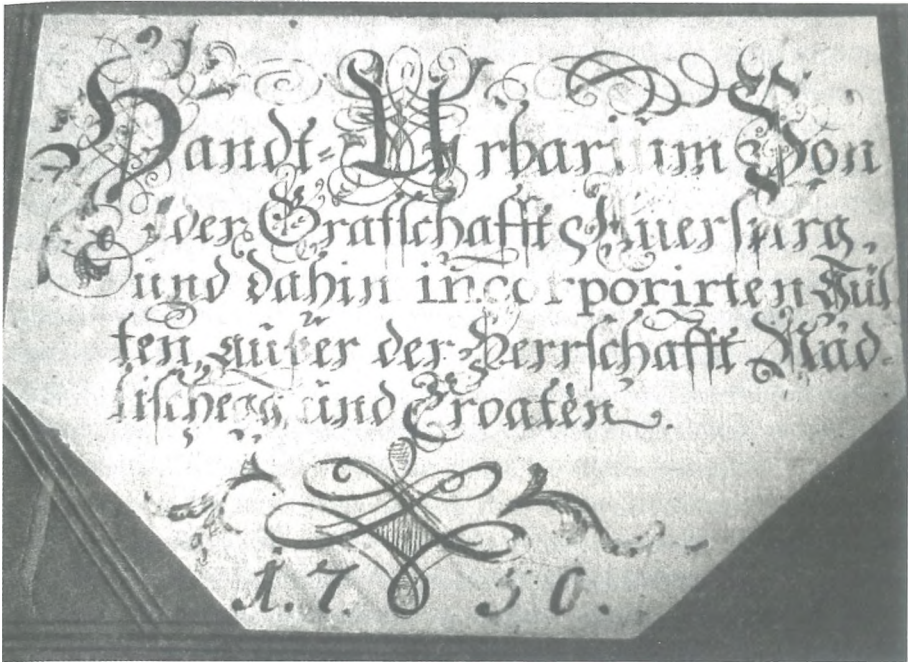 Handt-Urbarium Von
der Graffschafft Auersperg,
und dahin incorporirten Gül
ten, außer der Herrschafft Nad-
lischegg und Croaten.
1.7.50.